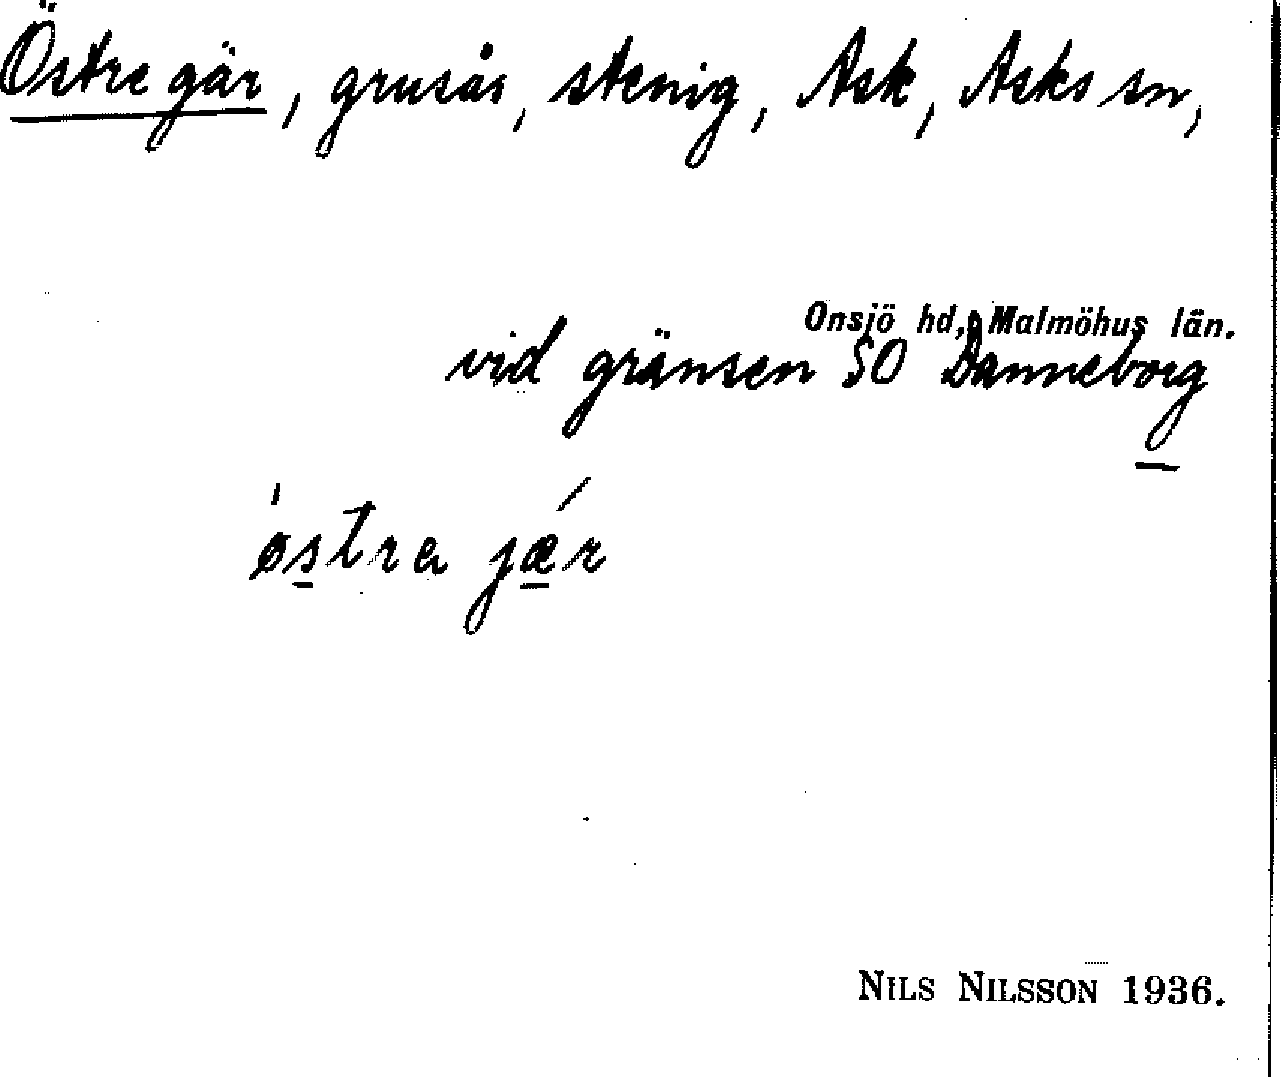 Östre gär, grusås, stenig, Ask, Asks sn,
Onsjö hd, Malmöhus län.
vid gränsen SO Danneborg
østra jær
NILS NILSSON 1936.